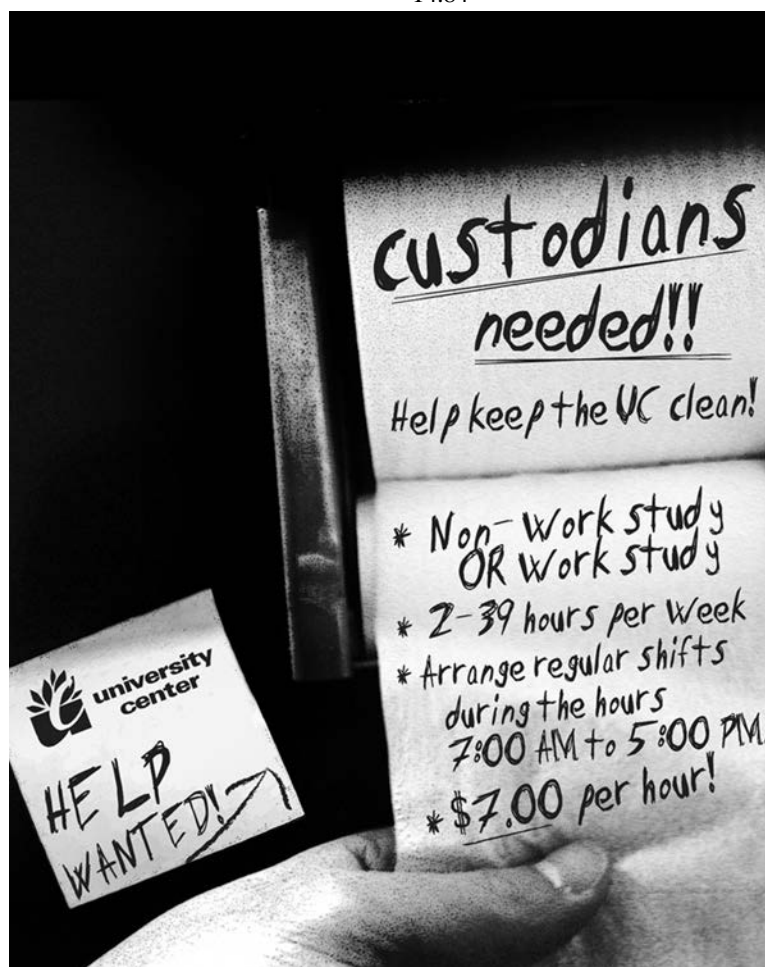 custodians
needed!!
Help keep the UC clean!
* Non-Work study
OR Work study
* 2-39 hours per Week
* Arrange regular shifts
during the hours
7:00 AM to 5:00 PM
* $7.00 per hour!
university
center
HELP
WANTED!